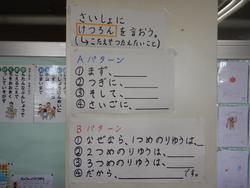 さいしょに
けつろんを言おう。
(↳こたえ？つたえたいこと)
Aパターン
①まず、
②つぎに、
③そして、
④さいごに、
Bパターン
①なぜなら、1つめのりゆうは、
②2つめのりゆうは、
③3つめのりゆうは、
④だから、です。